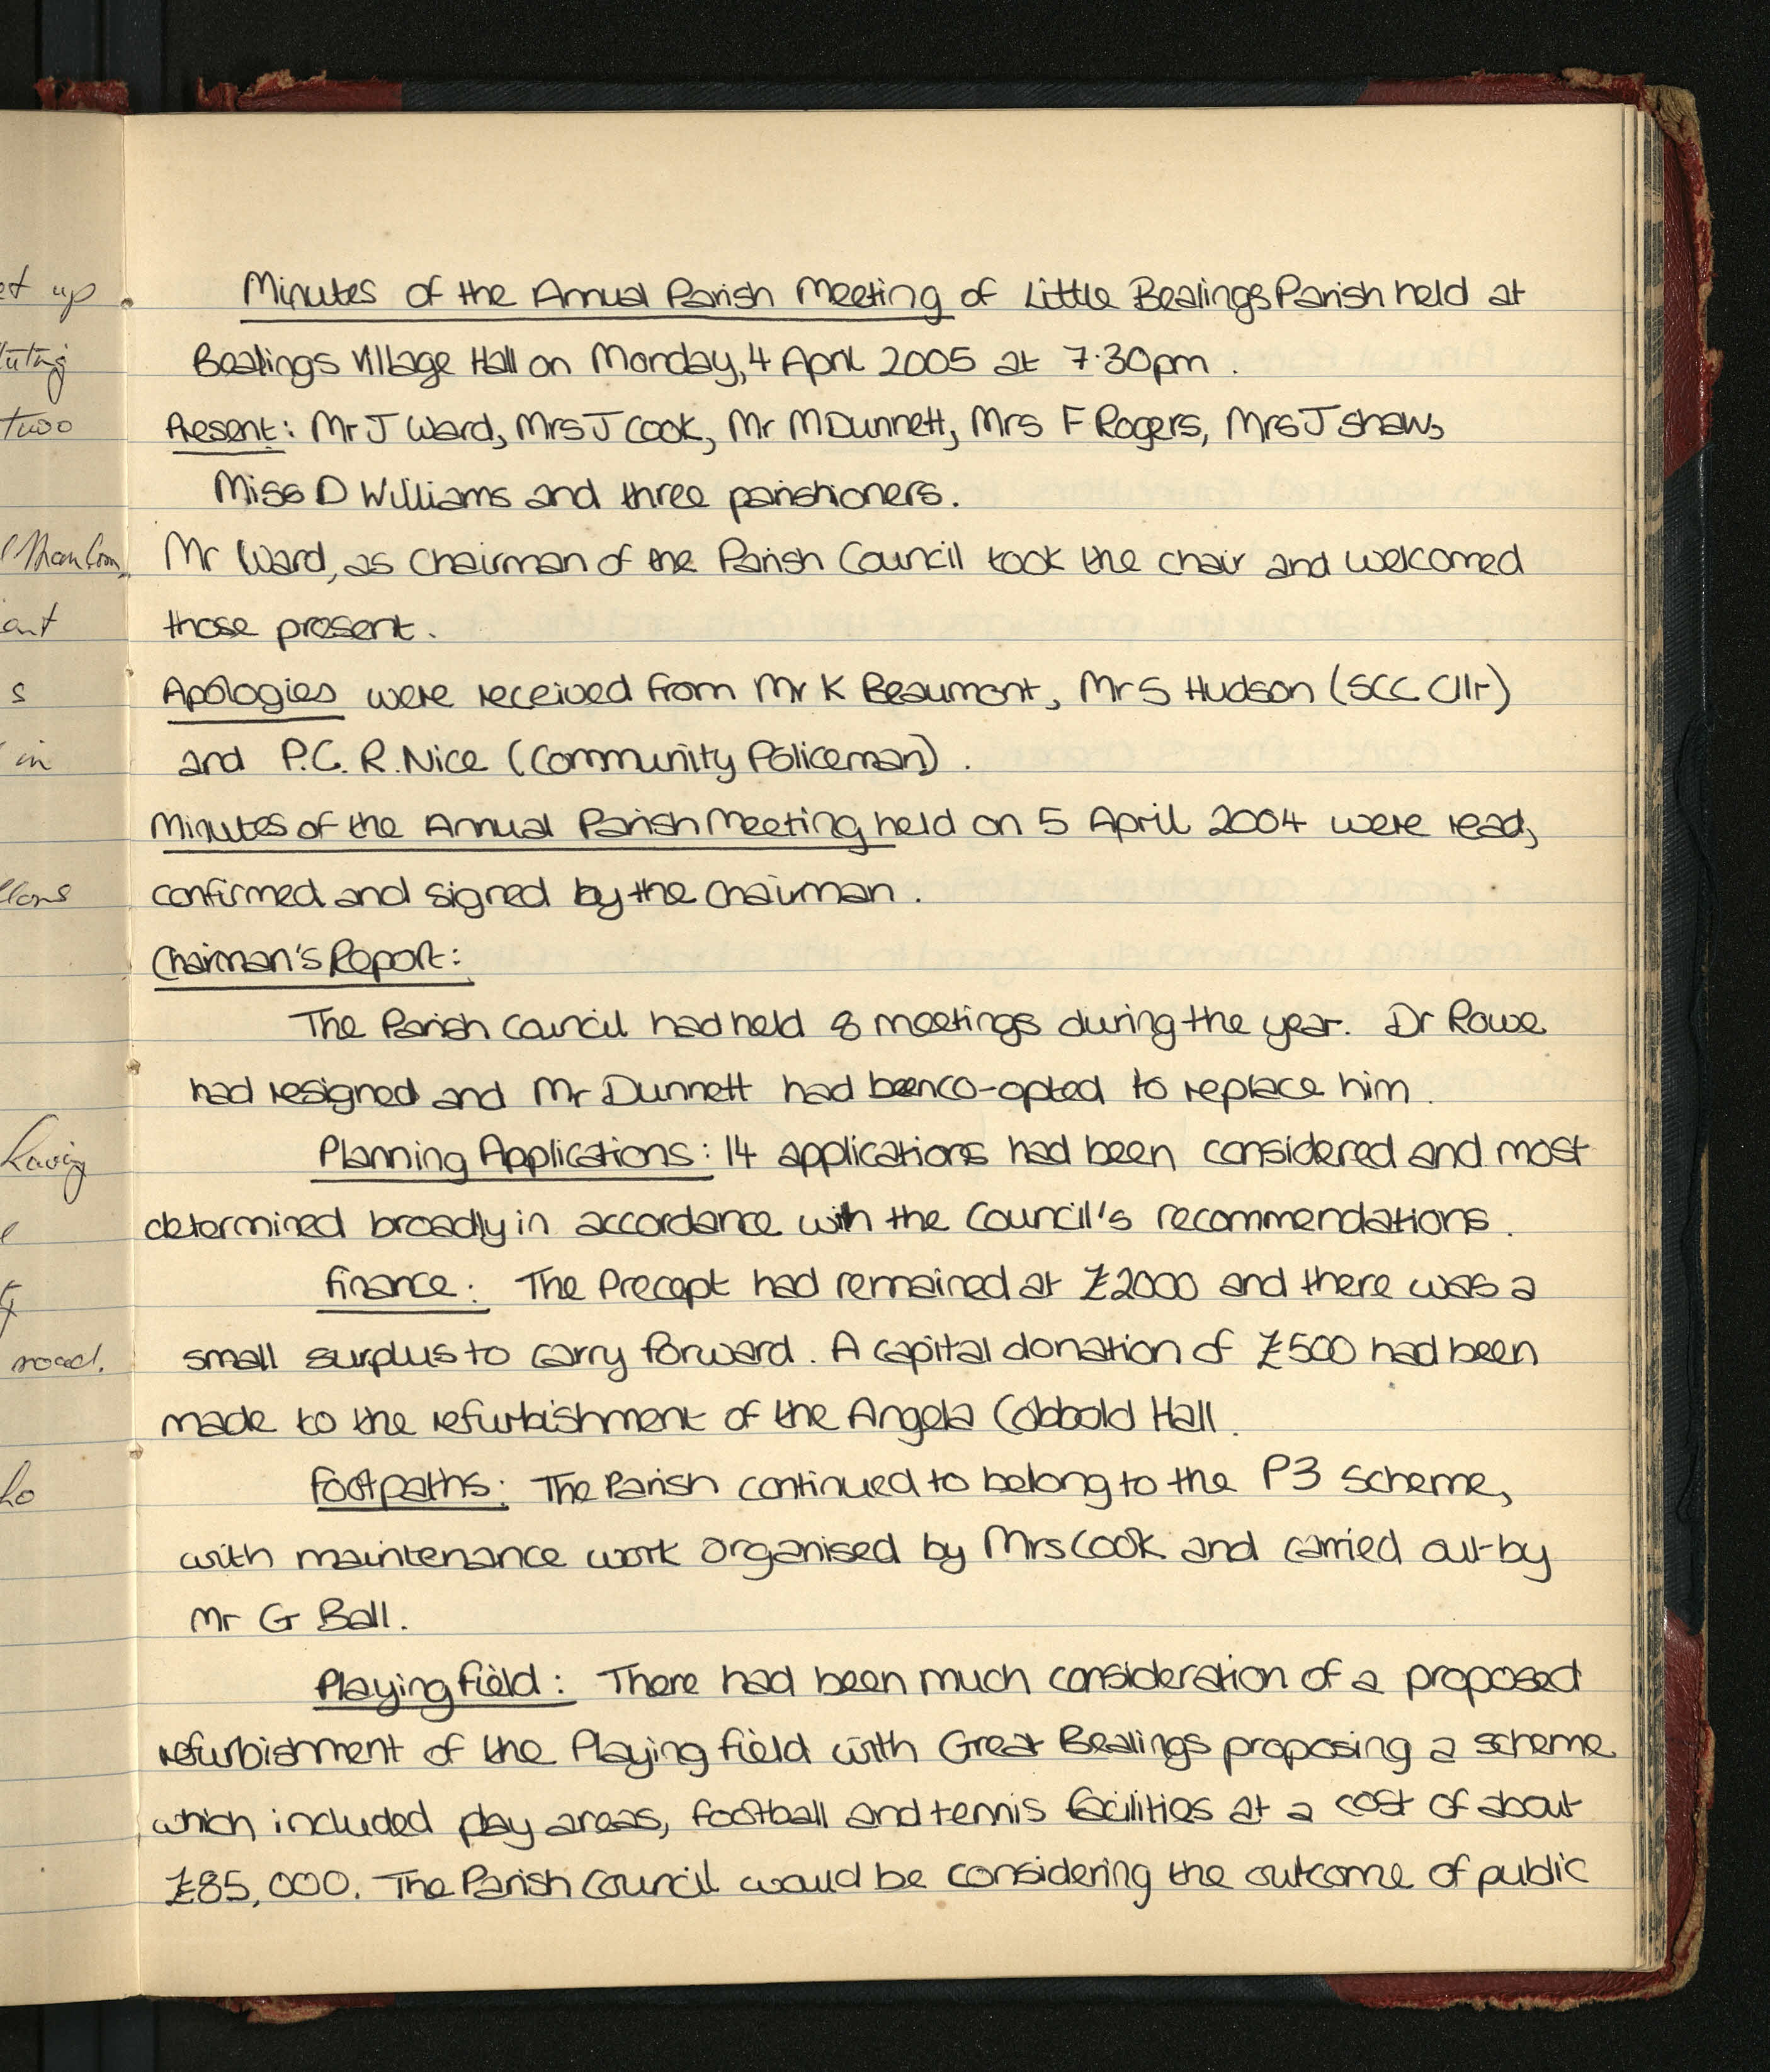 et up
two
ant
s
in
road.
ho
Minutes of the Annual Parish Meeting of Little Bealings Parish held at
Bealings Village Hall on Monday, 4 April 2005 at 7.30pm.
Present: Mr J Ward, Mrs J Cook, Mr M Dunnett, Mrs F Rogers, Mrs J Shaw,
Miss D Williams and three parishioners.
Mr Ward, as Chairman of the Parish Council took the chair and welcomed
those present.
Apologies were received from Mr K Beaumont, Mr S Hudson (SCC Cllr)
and P.C. R. Nice (Community Policeman).
Minutes of the Annual Parish Meeting held on 5 April 2004 were read,
confirmed and signed by the Chairman.
Chairman's Report:
The Parish Council had held 8 meetings during the year. Dr Rowe
had resigned and Mr Dunnett had been co-opted to replace him.
Planning Applications: 14 applications had been considered and most
determined broadly in accordance with the Council's recommendations.
Finance: The Precept had remained at £2000 and there was a
small surplus to carry forward. A capital donation of £500 had been
made to the refurbishment of the Angela Cobbold Hall.
Footpaths: The Parish continued to belong to the P3 Scheme,
with maintenance work organised by Mrs Cook and carried out by
Mr G Ball.
Playing field: There had been much consideration of a proposed
refurbishment of the Playing field with Great Bealings proposing a scheme
which included play areas, football and tennis facilities at a cost of about
£85,000. The Parish Council would be considering the outcome of public